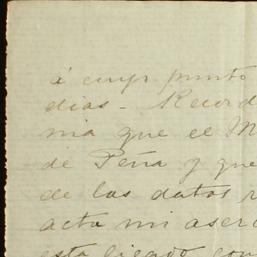 á cuyo punto
dias - Record
nia que el M
de Peña y que
de los datos r
acta mi aser
esta ligado con